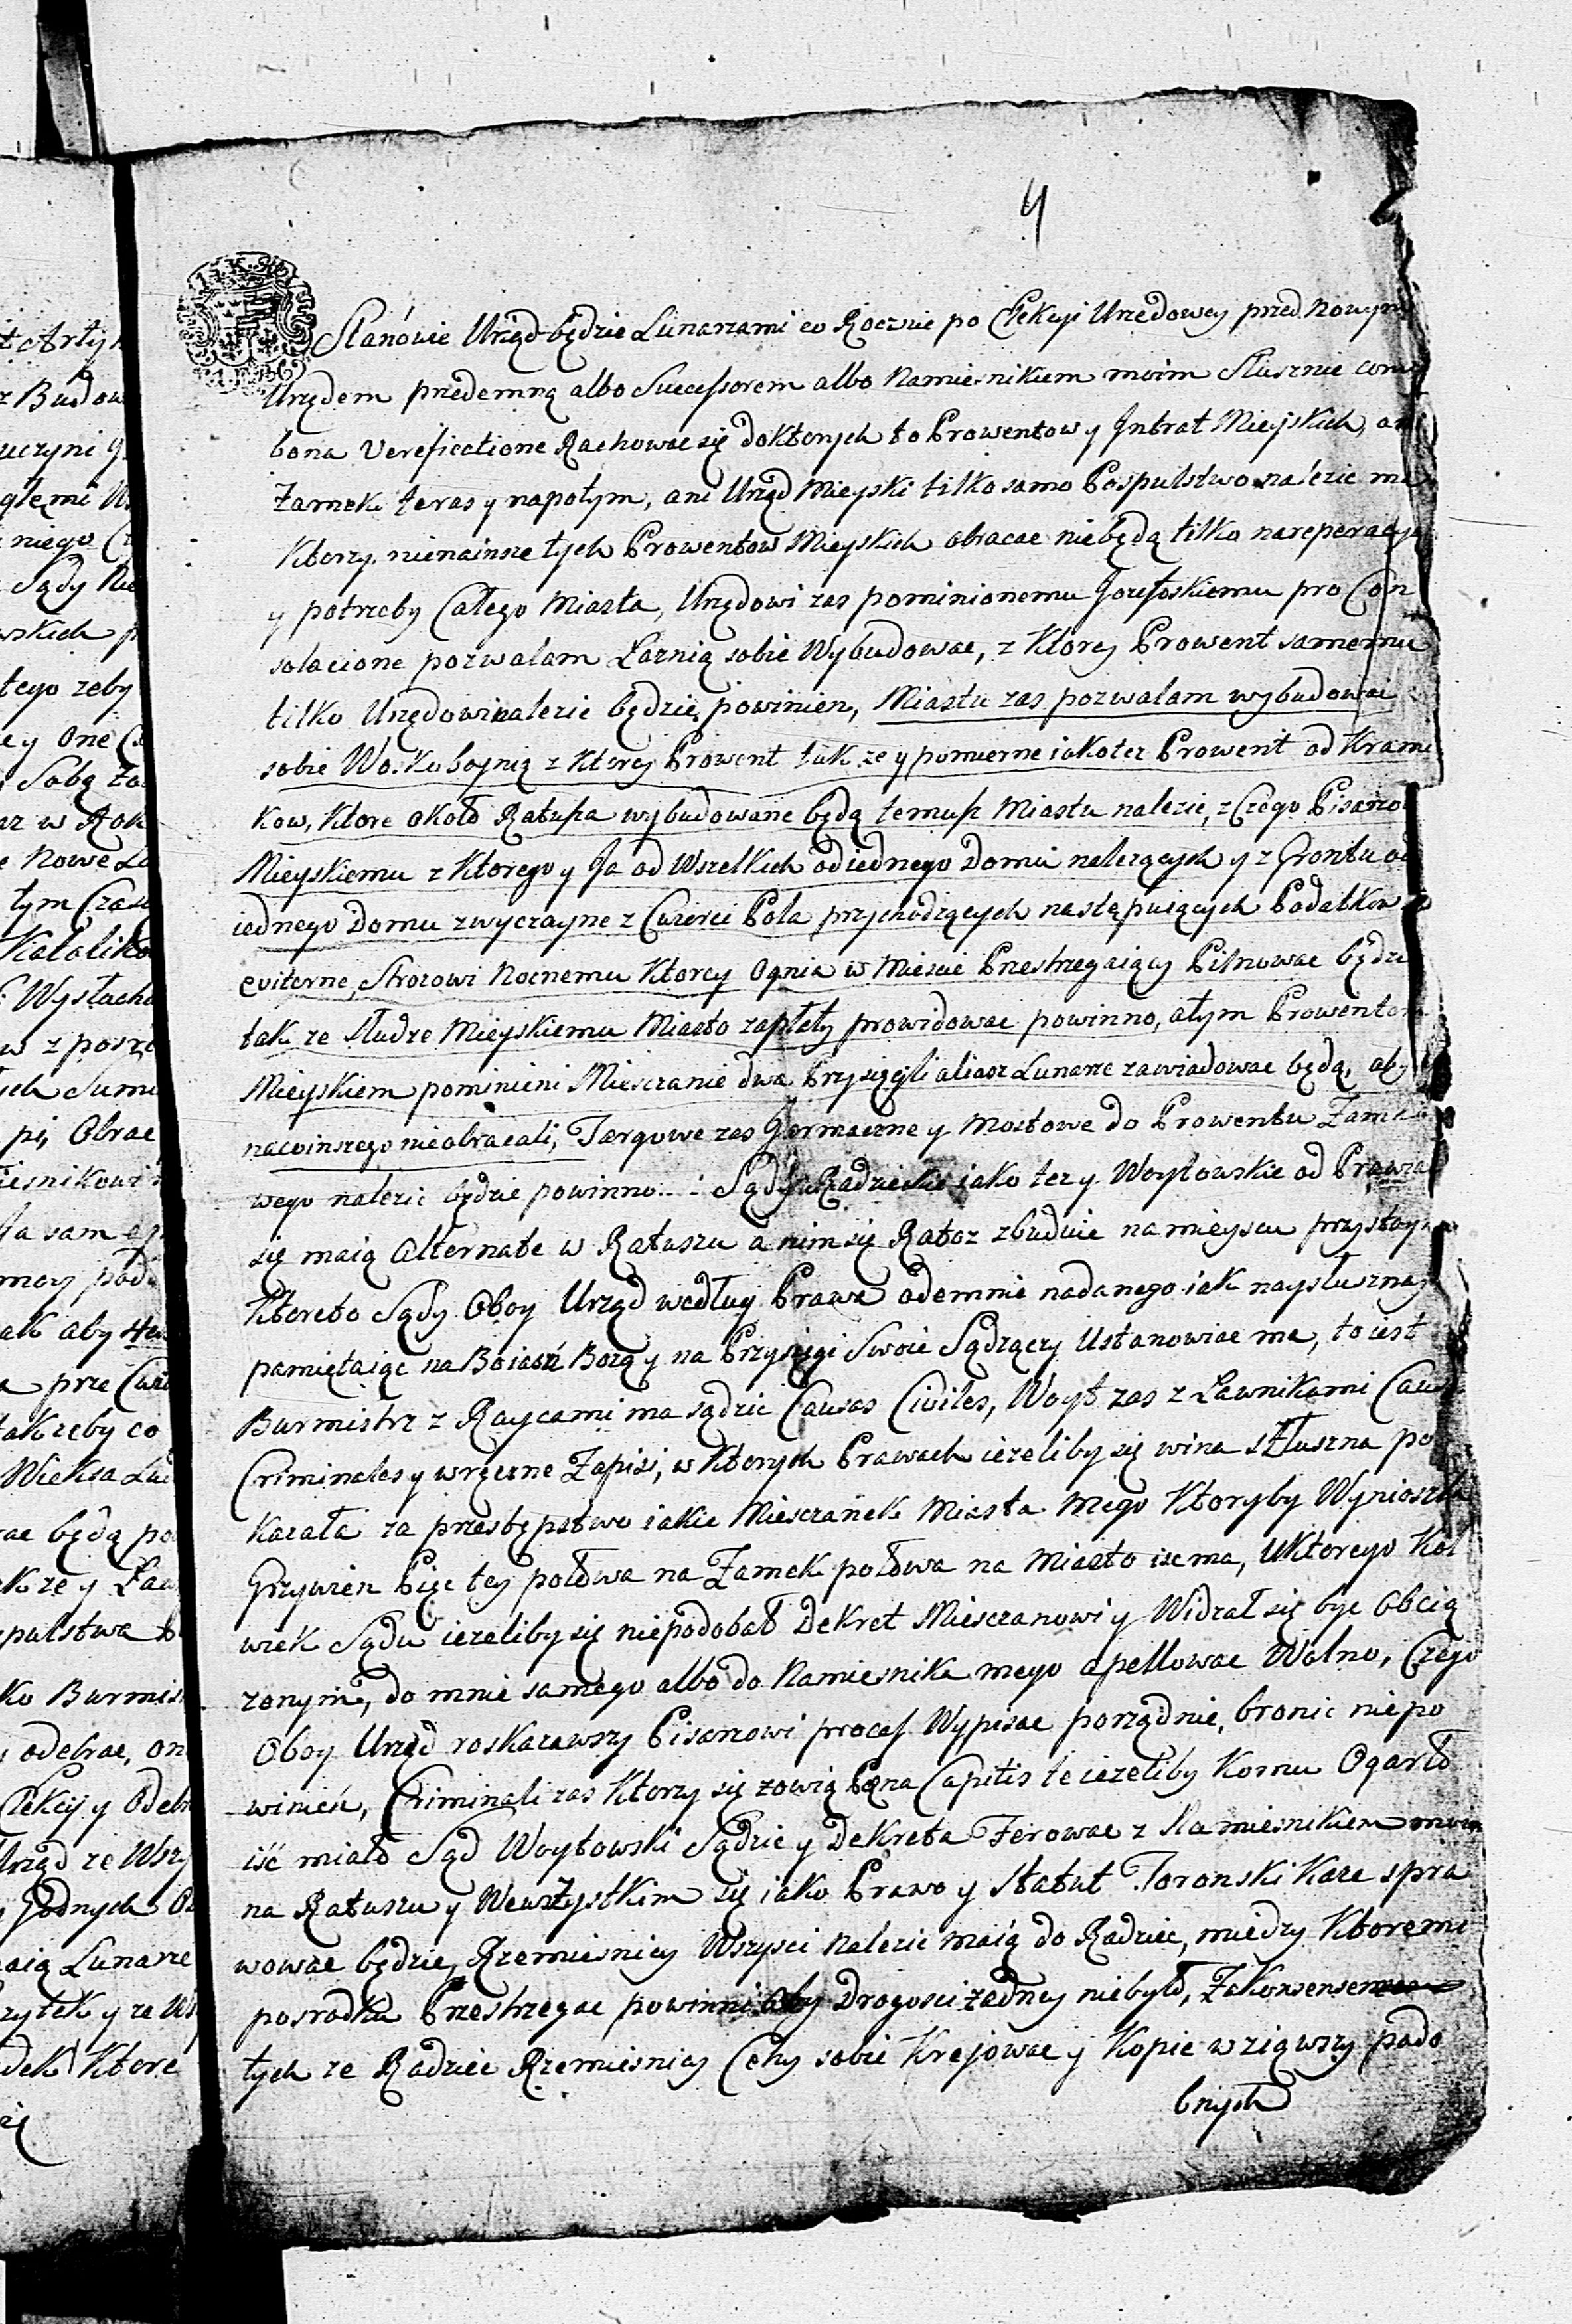 4
Stanowie Urząd będzie Lunarzami co Rocznie po Elekcyi Urzędowey przed Nowym
Urzędem przedemną albo Successorem albo Namiesnikiem moim Slusznie cum
bona Vereficatione Rachowac się doktorych to Prowentow y Intrat Mieyskich, ani
Zamek teras y napotym, ani Urząd Mieyski tilko samo Pospulstwo należec ma
Ktorzy nienainsze tych Prowentow Mieyskich obracac niebędą tilko nareperacyą
y potrzeby Całego Miasta, Urzędowi zas pominionemu Jozefoskiemu pro Con
solacione pozwalam Łaznią sobie Wybudowac, z Ktorej Prowent samemu
tilko Urzędowi należec będzie powinien, Miastu zas pozwalam wybudowac
sobie Woskoboynią z Ktorej Prowent tak ze y pomierne iakotez Prowent od Kram
kow, Ktore około Ratusza wybudowane będą temusz Miastu nalezec, z Czego Pisarzo
Mieyskiemu z Ktorego y Ja od Wszelkich od iednego Domu nalezących y z Grontu od
iednego Domu zwyczayne z Cwierci Pola przychodzących następuiących Podatkow
eviterne, Strozowi Nocnemu Ktorey Ognia w Miescie Przestrzegaiący Pilnowac będzie
tak ze Sludze Mieyskiemu Miasto zapłaty prowidowac powinno, atym Prowentom
Mieyskiem pominieni Miesczanie dwa Przysięgli aliasz Lunarze zawiadowac będą, aby
nacoinszego nieobracali, Targowe zas Jarmaczne y Mostowe do Prowentu Zamko
wego nalezec będzie powinno. Sądy Radzieckie iako tez y Woytowskie od Prawiac
się maią Alternate w Ratuszu a nim się Ratusz zbuduie na mieyscu przystoynym
Ktoreto Sądy Oboy Urząd według Prawa odemnie nadanego iak naysłuszniey
pamiętaiąc na Boiazń Bozą y na Przysięgi Swoie Sądzący Ustanowiac ma, to iest
Burmistrz z Raycami ma sądzic Causas Civiles, Woyt zas z Ławnikami Causas
Criminales y wręczne Zapisi, w Ktorych Prawach iezeliby się wina słuszna po
kazała za przestępstwo iakie Miesczanek Miasta mego Ktoryby Wyniosła
Grzywien Pięc tey połowa na Zamek połowa na Miasto isc ma, u Ktorego Kol
wiek Sądu iezeliby się niepodobał Dekret Miesczanowi y Widzał się byc Obcią
zonym, do mnie samego albo do Namiesnika mego apellowac Wolno, Czego
Oboy Urząd roskazawszy Pisarzowi proces Wypisac porządnie, bronic niepo
winień, Criminali zas Ktorzy się zowią Pœna Capitis te iezeliby Komu Ogardło
iść miało Sąd Woytowski Sądzic y Dekreta Ferowac z Namiesnikiem moim
na Ratuszu y Wewszystkim się iako Prawo y Statut Toronski Kaze spra
wowac będzie, Rzemiesnicy Wszysci nalezec maią do Radziec, miedzy Ktoremi
posrodku Przestrzegac powinni aby Drogosci zadney niebyło, Zakonsensem
tych ze Radziec Rzemiesnicy Cechy sobie Krejowac y Kopie wziąwszy podo
bnych